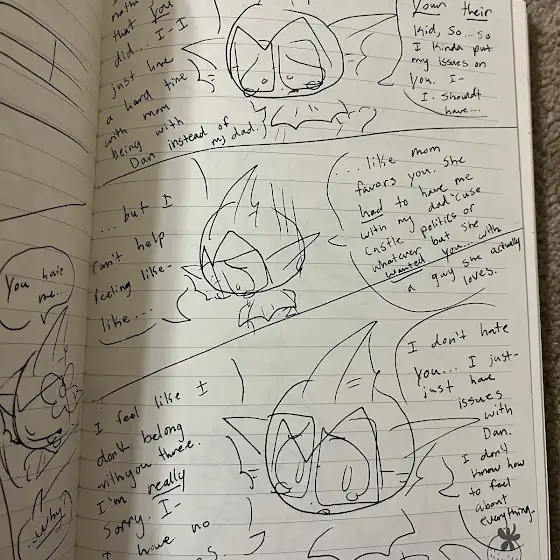 nothi
that you
did... I-I
just have
a hard time
with mom
being with
Dan instead of
my dad.
Your their
kid, so... so
I kinda put
my issues on
you. I-
I shouldt
have...
...but I
can't help
feeling like-
like...
...like mom
favors you. She
had to have me
with my dad 'cuse
castle politics or
whatever, but she
wanted you... with
a guy she actually
loves.
You hate
me..
Why
I feel like I
don't belong
with you three.
I'm really
sorry. I-
I have no
I don't hate
you... I just-
just have
issues
with
Dan.
I don't
know how
to feel
about
everything-